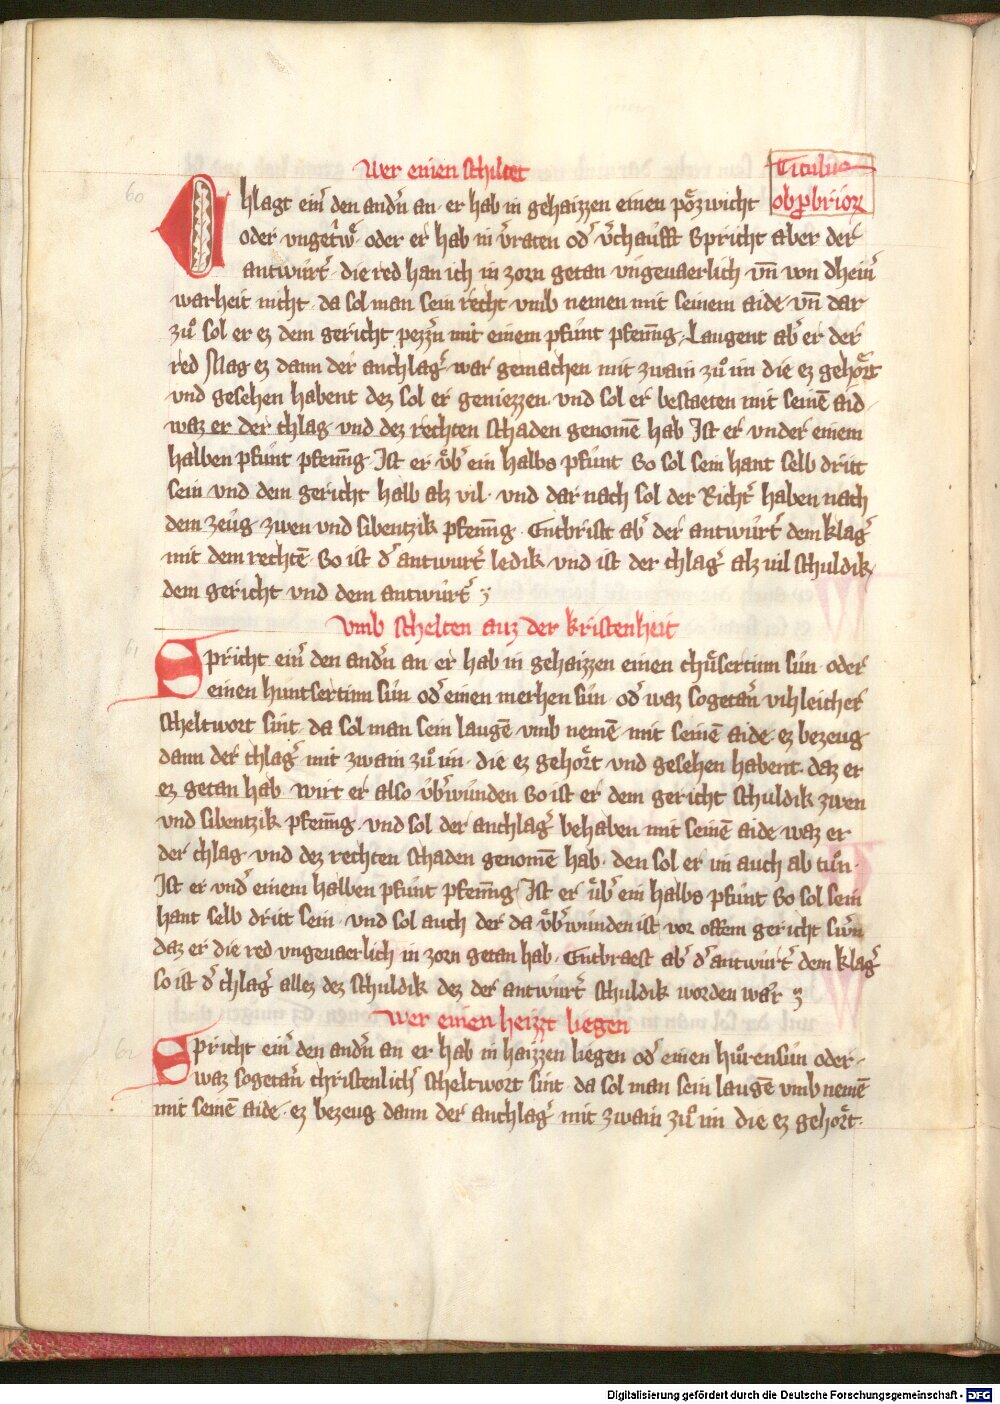 Wer einen schiltet
Titulus
obprobrior
60
Chlagt ein͛ den andn͛ an · er hab in gehaizzen einen poͤzwicht
oder vngetrͥwͤ · oder er hab in v͛raten od͛ v͛chaufft Spricht aber der
antwurt͛ · die red han ich in zorn getan vngeuaerlich vn̄ von dhein͛
warheit nicht · da sol man sein recht vmb nemen mit seinem aide · vn̄ dar
zuͦ sol er ez dem gericht pezzn͛ mit einem pfunt pfenīng · Laugent ab͛ er der
red Mag ez dann der anchlag͛ war gemachen mit zwain zuͦ im die ez gehoͤrt
vnd gesehen habent dez sol er geniezzen · vnd sol er bestaeten mit seinē aid ·
waz er der chlag · vnd dez rechten schaden genomē hab Ist er vnder einem
halben pfunt pfenīng · Ist er vͤb͛ ein halbs pfunt So sol sein hant selb dritt
sein · vnd dem gericht halb alz vil · vnd dar nach sol der Richt͛ haben nach
dem zeug · zwen vnd sibentzik pfenīng · Entbrist ab͛ der antwurt͛ dem klag͛
mit dem rechtē · So ist d͛ antwurt͛ ledik · vnd ist der chlag͛ alz vil schuldik
dem gericht vnd dem antwurt͛ ·
vmb schelten auz der kristenheit
61
Spricht ein͛ den andn͛ an er hab in gehaizzen einen chuͤsertinn sun · oder
einen huntsertinn sun od͛ einen merhen sun · od͛ waz sogetan͛ vihleicher
scheltwort sint · da sol man sein laugē vmb nemē · mit seinē aide · ez bezeug
dann der chlag͛ mit zwain zuͦ im · die ez gehoͤrt · vnd gesehen habent · daz er
ez getan hab · wirt er also vͤb͛wunden So ist er dem gericht schuldik zwen
vnd sibentzik pfenīng · vnd sol der anchlag͛ behaben mit seinē aide waz er
der chlag · vnd dez rechten schaden genomē hab · den sol er im auch ab tuͦn ·
Ist er vnd͛ einem halben pfunt pfenīng Ist er vͤb͛ ein halbs pfunt So sol sein
hant selb dritt sein · vnd sol auch der da vͤb͛wunden ist · vor offem gericht swn͛
daz er die red vngeuaerlich in zorn getan hab · Entbraest ab͛ d͛ antwurt͛ dem klag͛
so ist d͛ chlag͛ allez dez schuldik dez der antwurt͛ schuldik worden waͤr
Wer einen heizzt liegen
62
Spricht ein͛ den andn͛ an er hab in haizzen liegen od͛ einen huͦrensun oder ·
waz sogetan͛ christenlich͛ scheltwort sint · da sol man sein laugē vmb nemē
mit seinē aide · ez bezeug dann der anchlag͛ mit zwain zuͦ im die ez gehoͤrt ·
Digitalisierung gefördert durch die Deutsche Forschungsgemeinschaft - DFG